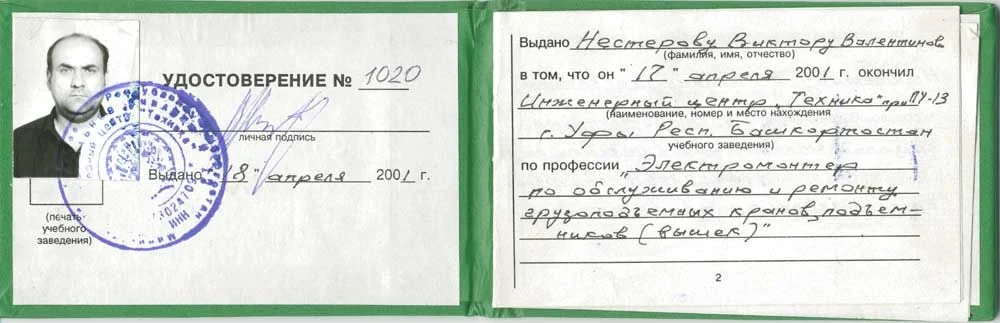 УДОСТОВЕРЕНИЕ № 1020
личная подпись
Выдано "18" апреля 2001 г.
(печать
учебного
заведения)
Выдано Нестерову Виктору Валентинов
(фамилия, имя, отчество)
в том, что он "17" апреля 2001 г. окончил
Инженерный центр "Техника" при ПУ-13
(наименование, номер и место нахождения
г. Уфы Респ. Башкортостан
учебного заведения)
по профессии "Электромонтер
по обслуживанию и ремонту
грузоподъемных кранов, подъем-
ников (вышек)"
2